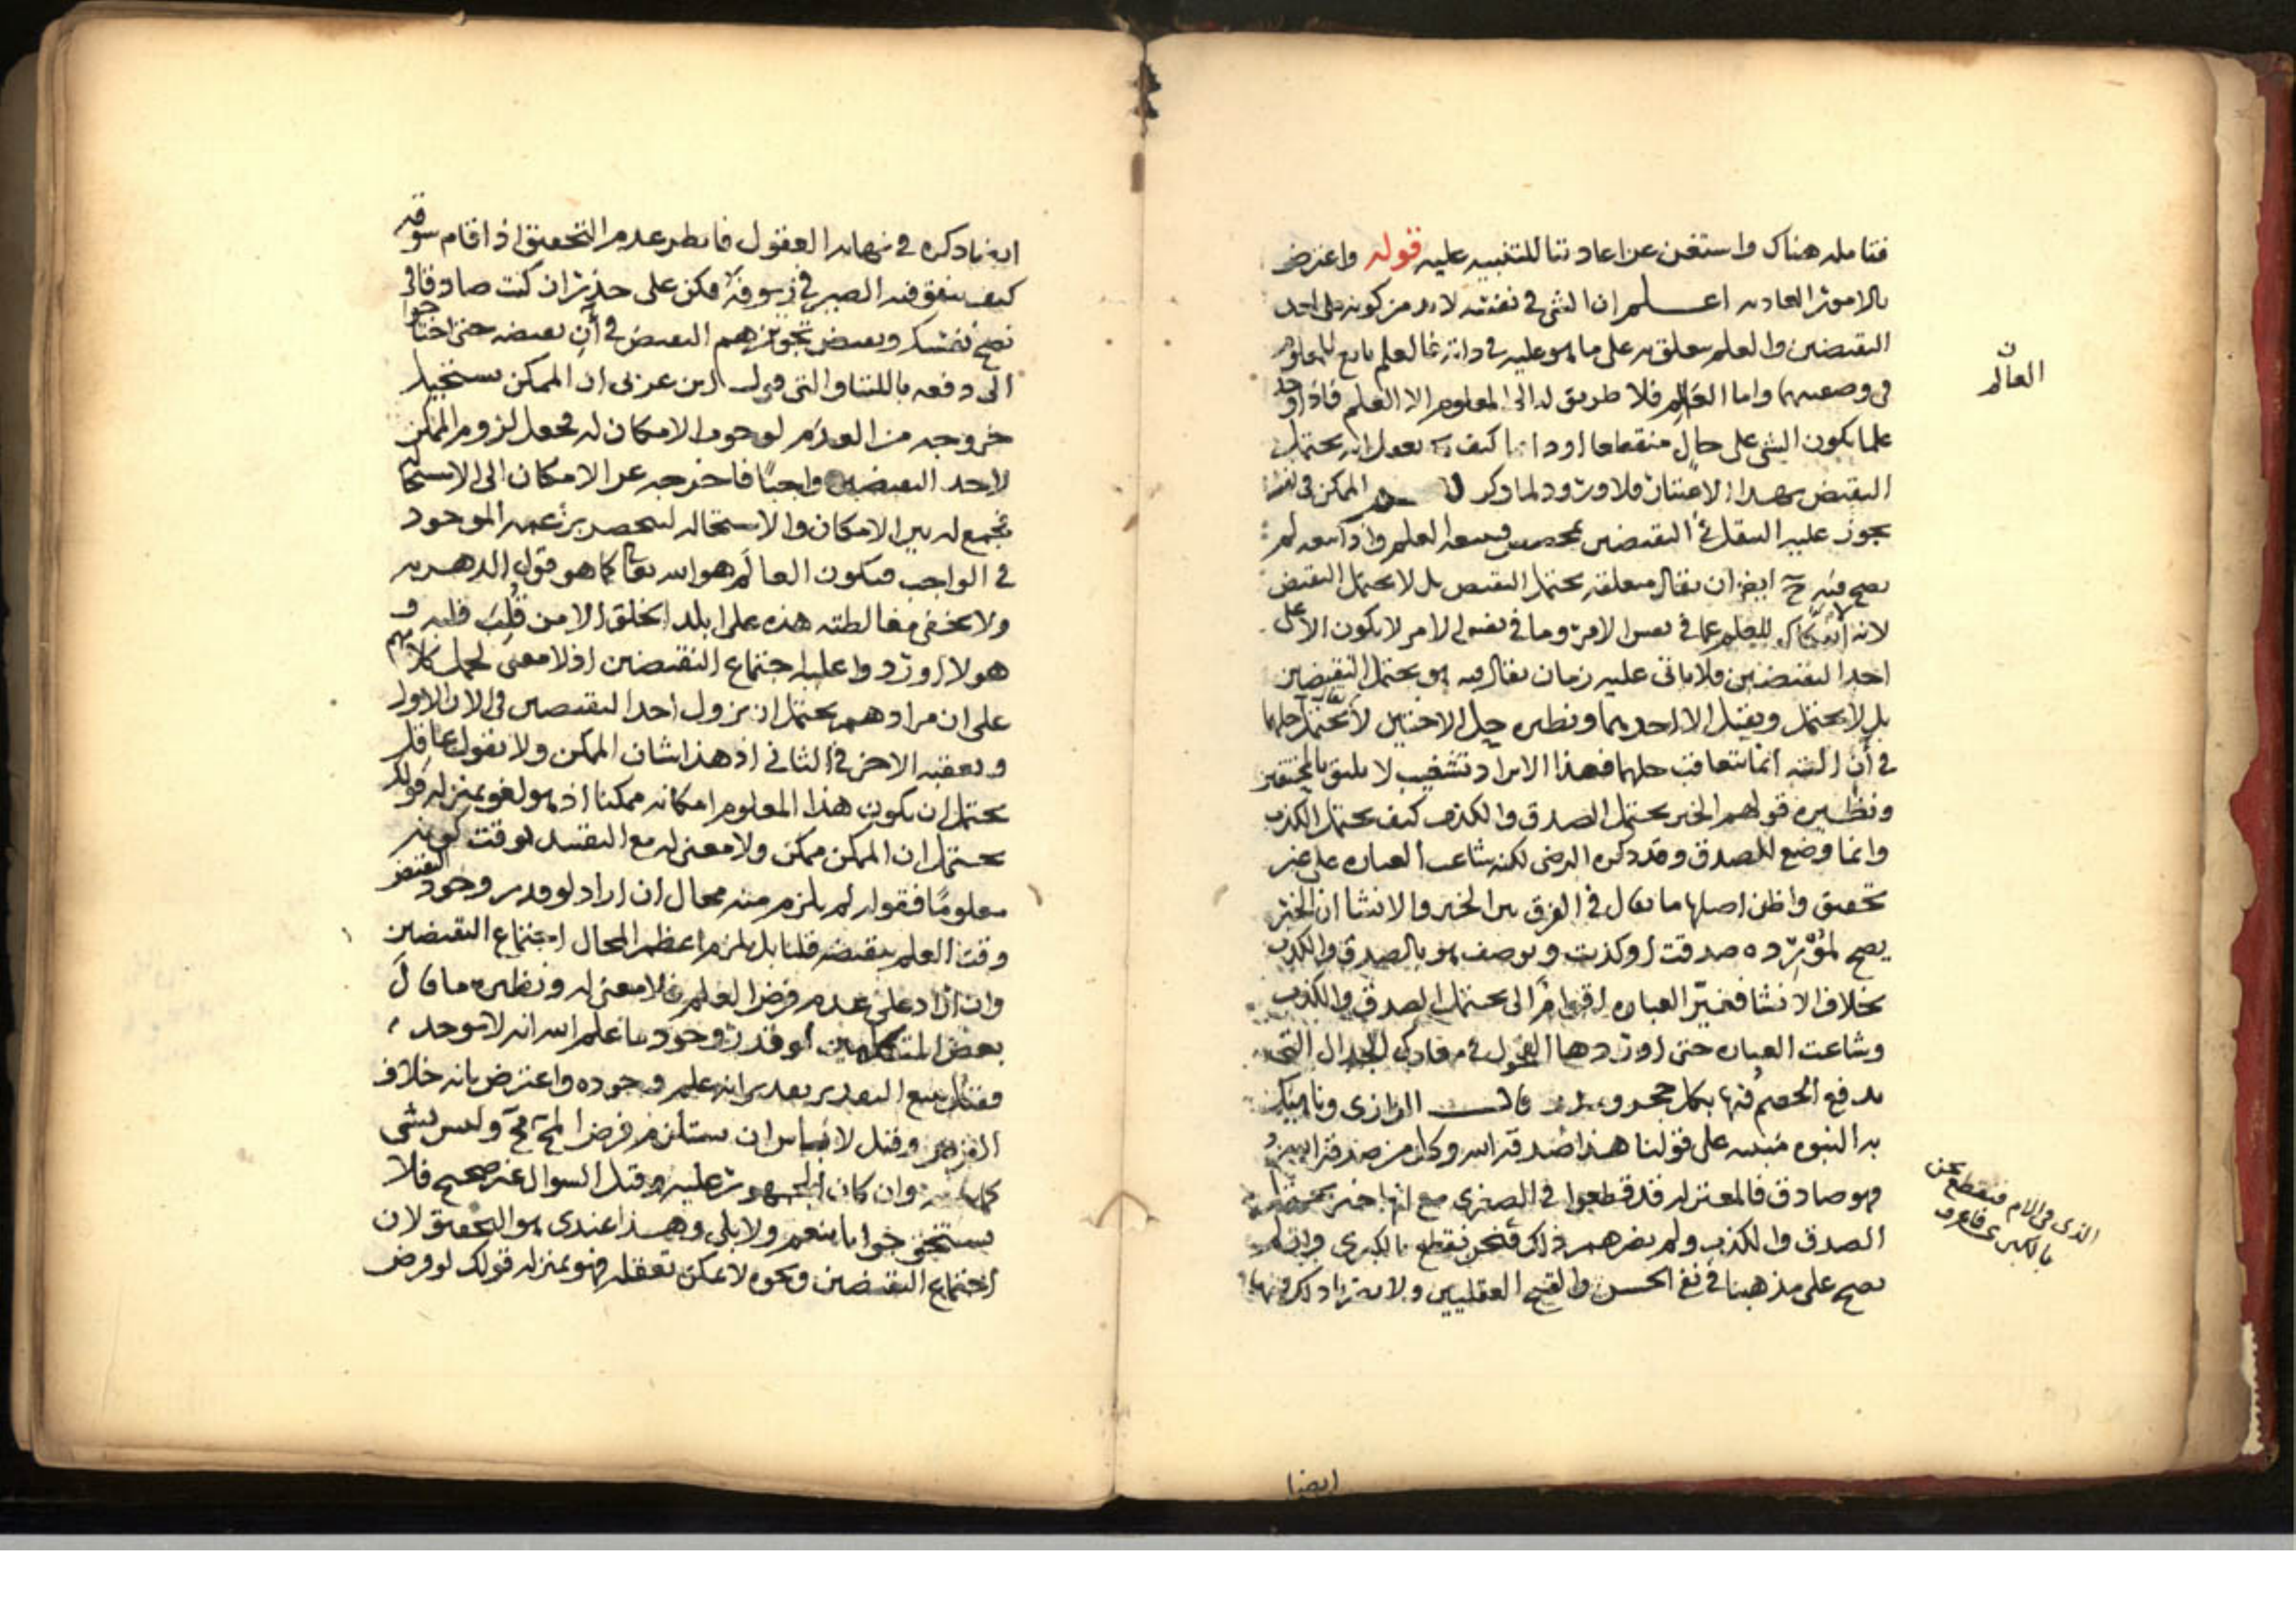 فتامله هناك واستغن عن اعادتنا للتنبيه عليه قوله واعترض
بالامور العاديه اعلم ان الشي في نفسه لا بد من كونه على احد
النقيضين والعلم يتعلق به على ما هو عليه في ذاته فالعلم تابع للمعلوم
في وصفيهما واما العالم فلا طريق له الى المعلوم الا العلم فاذا وجد
علما بكون الشي على حال منقطعا او دائما كيف يعول انه يحتمل
النقيض بهذا الاعتبار فلا ورود لما ذكر الممكن في نفسه
يجوز عليه النقيضين فيتبعه العلم واذا تبعه لم
يصح فيه ح ايضا ان يقال متعلقه يحتمل النقيض بل لا يحتمل النقيض
لانه لا انفكاك للعلم عما في نفس الامر وما في نفس الامر لا يكون الا على
احد النقيضين فلا ياتي عليه زمان يقال فيه هو يحتمل النقيضين
بل لا يحتمل ويقبل الا احدهما ونظيره حل الاختين لا يحتمل حلهما
في آن البته انما يتعاقب حلهما فهذا الايراد تشغيب لا يليق بالمحققين
ونظيره قولهم الخبر يحتمل الصدق والكذب كيف يحتمل الكذب
وانما وضع للصدق وقد ذكره الرضي لكنه شاعت العباره على غير
تحقيق واظن اصلها ما يقال في الفرق بين الخبر والانشا ان الخبر
يصح لمورده صدقت او كذبت ويوصف هو بالصدق والكذب
بخلاف الانشا فغير العباره اقوام الى يحتمل الصدق والكذب
وشاعت العباره حتى اوردها الفحول في معارك الجدال التي
يدفع الخصم فيها بكل حجر ومدر قال الرازي وناهيك
به النبوه مبنيه على قولنا هذا صدقه الله وكل من صدقه الله
فهو صادق فالمعتزله قد قطعوا في الصغرى مع انها خبر يحتمل
الصدق والكذب ولم يضرهم ذلك فنحن نقطع بالكبرى وان لم
يصح على مذهبنا في نفي الحسن والقبح العقليين ولا يضر ذلك فيها
ن
العالم
الذي في الام فنقطع نحن
بالكبرى فاعرف
ايضا
ايه ما ذكره في نهايه العقول فانظر عدم التحقيق اذا قام سوقه
كيف ينفق فيه الصبرفي زيوفه فكن على حذر ان كنت صادقا في
نصح نفسك وبعض تجويزهم النقيض في آن نقيضه حتى احتاجوا
الى دفعه باللتيا والتي قول ابن عربي ان الممكن يستحيل
خروجه من العدم لوجوب الامكان له فجعل لزوم الممكن
لاحد النقيضين واجبا فاخرجه عن الامكان الى الاستحاله
فجمع له بين الامكان والاستحاله لينحصر بزعمه الموجود
في الواجب فيكون العالم هو الله تعالى كما هو قول الدهريه
ولا يخفى مغالطته هذه على ابلد الخلق الا من قلب قلبه و
هولا اوردوا عليه اجتماع النقيضين اذ لا معنى لحمل كلامهم
على ان مرادهم يحتمل ان يزول احد النقيضين في الان الاول
ويعقبه الاخر في الثاني اذ هذا شان الممكن ولا يقول عاقل
يحتمل ان يكون هذا المعلوم امكانه ممكنا اذ هو لغو بمنزله قولك
يحتمل ان الممكن ممكن ولا معنى له مع التقييد لوقت كونه
معلوما فقوله لم يلزم منه محال ان اراد لو قدر وجود النقيض
وقت العلم بنقيضه قلنا بل يلزم اعظم المحال اجتماع النقيضين
وان اراد على عدم فرض العلم فلا معنى له ونظيره ما قال
بعض المتكلمين لو قدر وجود ما علم الله انه لا يوجد
فقيل يتبع التقدير تقدير انه علم وجوده واعترض بانه خلاف
الفرض وقيل لا باس ان يستلزم فرض المح مح وليس بشي
وان كان الجمهور عليه وقيل السوال غير صحيح فلا
يستحق جوابا بنعم ولا بلى وهذا عندي هو التحقيق لان
اجتماع النقيضين ونحوه لا يمكن تعقله فهو بمنزله قولك لو فرض